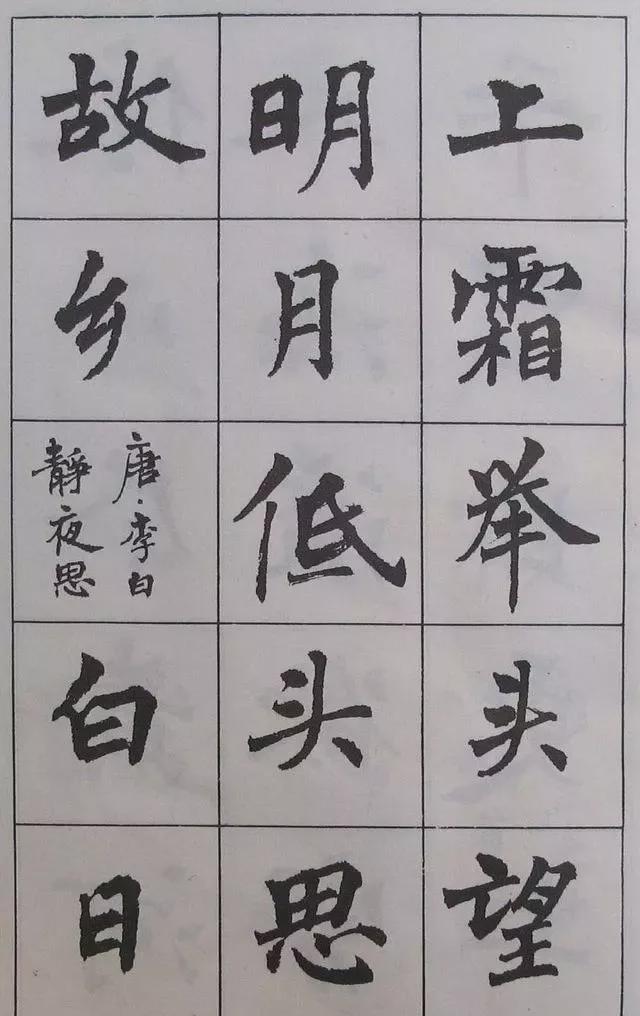 上霜举头望
明月低头思
故乡
唐·李白
静夜思
白日